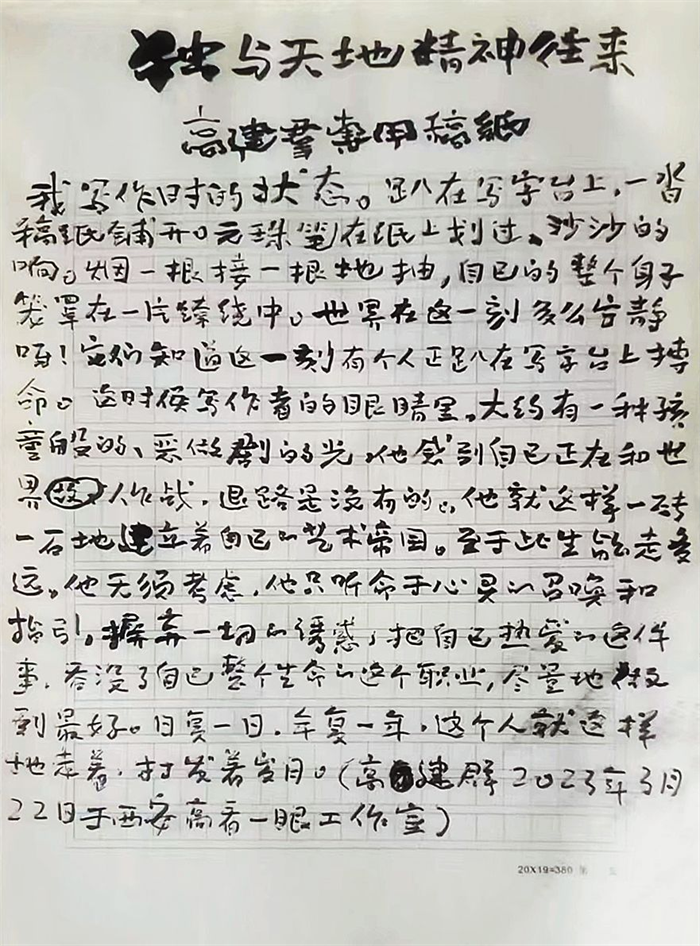 独与天地精神往来
高建群专用稿纸
我写作时的状态。趴在写字台上，一沓
稿纸铺开。元珠笔在纸上划过、沙沙的
响。烟一根接一根地抽，自己的整个身子
笼罩在一片缭绕中。世界在这一刻多么安静
呀！它们知道这一刻有个人正趴在写字台上搏
命。这时候写作者的眼睛里，大约有一种孩
童般的、恶做剧的光。他感到自己正在和世
界 作战，退路是没有的。他就这样一砖
一石地建立着自己的艺术帝国。至于此生能走多
远，他无须考虑，他只听命于心灵的召唤和
指引。摒弃一切的诱惑，把自己热爱的这件
事，吞没了自己整个生命的这个职业，尽量地做
到最好。日复一日，年复一年，这个人就这样
地走着，打发着岁月。（高建群2023年3月
22日于西安高看一眼工作室）
20X19=380 第